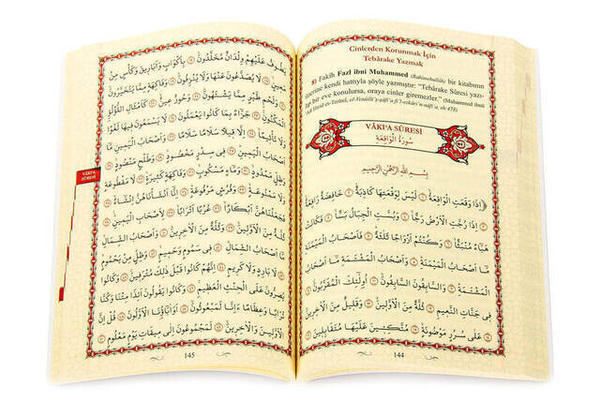 Cinlerden Korunmak İçin
Tebârake Yazmak
8) Fakîh Fazl ibni Muhammed (Rahimehullâh) bir kitabının
üzerine kendi hattıyla şöyle yazmıştır: “Tebârake Sûresi yazı-
lıp bir eve konulursa, oraya cinler giremezler.” (Muhammed ibnü
VÂKI'A SÛRESİ
سُورَةُ الْوَاقِعَةِ
بِسْمِ اللهِ الرَّحْمٰنِ الرَّحِيمِ
﴿اِذَا وَقَعَتِ الْوَاقِعَةُ ۝ لَيْسَ لِوَقْعَتِهَا كَاذِبَةٌ ۝ خَافِضَةٌ رَافِعَةٌ
اِذَا رُجَّتِ الْاَرْضُ رَجًّا ۝ وَبُسَّتِ الْجِبَالُ بَسًّا ۝ فَكَانَتْ
هَبَاءً مُنْبَثًّا ۝ وَكُنْتُمْ اَزْوَاجًا ثَلٰثَةً ۝ فَاَصْحَابُ الْمَيْمَنَةِ
مَا اَصْحَابُ الْمَيْمَنَةِ ۝ وَاَصْحَابُ الْمَشْئَمَةِ مَا اَصْحَابُ
الْمَشْئَمَةِ ۝ وَالسَّابِقُونَ السَّابِقُونَ ۝ اُولٰئِكَ الْمُقَرَّبُونَ
فِي جَنَّاتِ النَّعِيمِ ۝ ثُلَّةٌ مِنَ الْاَوَّلِينَ ۝ وَقَلِيلٌ مِنَ الْاٰخِرِينَ
عَلٰى سُرُرٍ مَوْضُونَةٍ ۝ مُتَّكِئِينَ عَلَيْهَا مُتَقَابِلِينَ
144
يَطُوفُ عَلَيْهِمْ وِلْدَانٌ مُخَلَّدُونَ ۝ بِاَكْوَابٍ وَاَبَارِيقَ وَكَاْسٍ مِنْ
مَعِينٍ ۝ لَا يُصَدَّعُونَ عَنْهَا وَلَا يُنْزِفُونَ ۝ وَفَاكِهَةٍ مِمَّا يَتَخَيَّرُونَ
وَلَحْمِ طَيْرٍ مِمَّا يَشْتَهُونَ ۝ وَحُورٌ عِينٌ ۝ كَاَمْثَالِ اللُّؤْلُؤِ
الْمَكْنُونِ ۝ جَزَاءً بِمَا كَانُوا يَعْمَلُونَ ۝ لَا يَسْمَعُونَ فِيهَا لَغْوًا
وَلَا تَاْثِيمًا ۝ اِلَّا قِيلًا سَلَامًا سَلَامًا ۝ وَاَصْحَابُ الْيَمِينِ مَا
اَصْحَابُ الْيَمِينِ ۝ فِي سِدْرٍ مَخْضُودٍ ۝ وَطَلْحٍ مَنْضُودٍ ۝ وَظِلٍّ
مَمْدُودٍ ۝ وَمَاءٍ مَسْكُوبٍ ۝ وَفَاكِهَةٍ كَثِيرَةٍ ۝ لَا مَقْطُوعَةٍ
وَلَا مَمْنُوعَةٍ ۝ وَفُرُشٍ مَرْفُوعَةٍ ۝ اِنَّا اَنْشَاْنَاهُنَّ اِنْشَاءً
فَجَعَلْنَاهُنَّ اَبْكَارًا ۝ عُرُبًا اَتْرَابًا ۝ لِاَصْحَابِ الْيَمِينِ
ثُلَّةٌ مِنَ الْاَوَّلِينَ ۝ وَثُلَّةٌ مِنَ الْاٰخِرِينَ ۝ وَاَصْحَابُ الشِّمَالِ
مَا اَصْحَابُ الشِّمَالِ ۝ فِي سَمُومٍ وَحَمِيمٍ ۝ وَظِلٍّ مِنْ يَحْمُومٍ
لَا بَارِدٍ وَلَا كَرِيمٍ ۝ اِنَّهُمْ كَانُوا قَبْلَ ذٰلِكَ مُتْرَفِينَ ۝ وَكَانُوا
يُصِرُّونَ عَلَى الْحِنْثِ الْعَظِيمِ ۝ وَكَانُوا يَقُولُونَ اَئِذَا مِتْنَا وَكُنَّا
تُرَابًا وَعِظَامًا ءَاِنَّا لَمَبْعُوثُونَ ۝ اَوَاٰبَاؤُنَا الْاَوَّلُونَ ۝ قُلْ اِنَّ
الْاَوَّلِينَ وَالْاٰخِرِينَ ۝ لَمَجْمُوعُونَ اِلٰى مِيقَاتِ يَوْمٍ مَعْلُومٍ
145
VÂKI'A
SÛRESİ